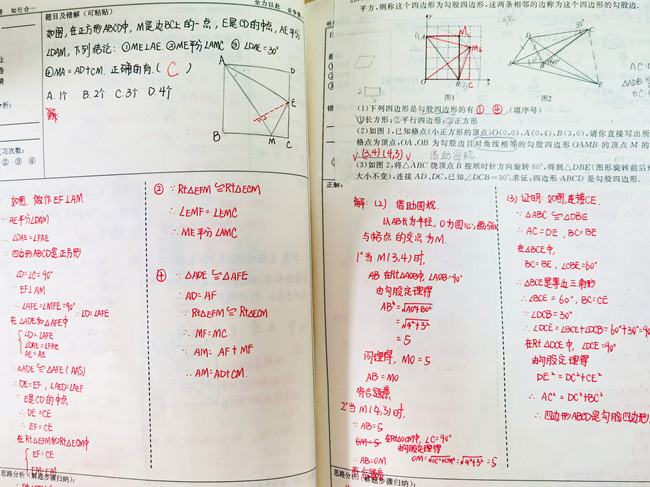 题目及错解（可粘贴）
如图,在正方形ABCD中,M是边BC上的一点,E是CD的中点,AE平分
∠DAM,下列结论:①ME⊥AE ②ME平分∠AMC ③∠DAE=30°
④MA=AD+CM.正确的有.( C )
A.1个 B.2个 C.3个 D.4个
A
D
E
B
M
C
如图,做作EF⊥AM.
∵AE平分∠DAM
∴∠DAE=∠FAE
∵四边形ABCD是正方形
∴∠D=∠C=90°
∵EF⊥AM
∴∠AFE=∠MFE=90° ∴∠D=∠AFE
在△ADE和△AFE中
∠D=∠AFE
∠DAE=∠FAE
AE=AE
∴△ADE≌△AFE(AAS)
∴DE=EF,∠AED=∠AEF
∵E是CD的中点
∴DE=CE
∴EF=CE
在Rt△EFM和Rt△ECM中
EF=CE
EM=EM
② ∵Rt△EFM≌Rt△ECM
∴∠EMF=∠EMC
∴ME平分∠AMC
④ ∵△ADE≌△AFE
∴AD=AF
∵Rt△EFM≌Rt△ECM
∴MF=MC
∵AM=AF+MF
∴AM=AD+CM.
思路分析（解题步骤归纳）:
方形,则称这个四边形为勾股四边形,这两条相邻的边称为这个四边形的勾股边.
图1
图2
(1)下列四边形是勾股四边形的有 ① ③ .(填序号)
①长方形;②平行四边形;③正方形
(2)如图1,已知格点(小正方形的顶点)O(0,0),A(0,4),B(3,0),请你直接写出所
格点为顶点,OA,OB为勾股边且对角线相等的勾股四边形OAMB的顶点M的
(3,4)(4,3) 借助圆规
(3)如图2,将△ABC绕顶点B按顺时针方向旋转60°,得到△DBE(图形旋转前后
大小不变),连接AD,DC,已知∠DCB=30°.求证:四边形ABCD是勾股四边形.
正解:
解:(2) 借助圆规
以AB长为半径,O为圆心,画弧
与格点的交点为M.
1°当M(3,4)时,
AB在Rt△AOB中,∠AOB=90°
由勾股定理得
=5
同理得,MO=5
AB=MO
符合题意
2°当M(4,3)时,
∵AB=5
由勾股定理得
∴AB=OM
(3)证明:如图,连接CE.
∵△ABC≌△DBE
∴AC=DE,BC=BE
在△BCE中,
BC=BE,∠CBE=60°
∴△BCE是等边三角形
∴∠BCE=60°,BC=CE
∵∠DCB=30°
∴∠DCE=∠BCE+∠DCB=60°+30°=90
在Rt△DCE中,∠DCE=90°
由勾股定理得
DE²=DC²+CE²
∴AC²=DC²+BC²
∴四边形ABCD是勾股四边形
思路分析（解题步骤归纳）: